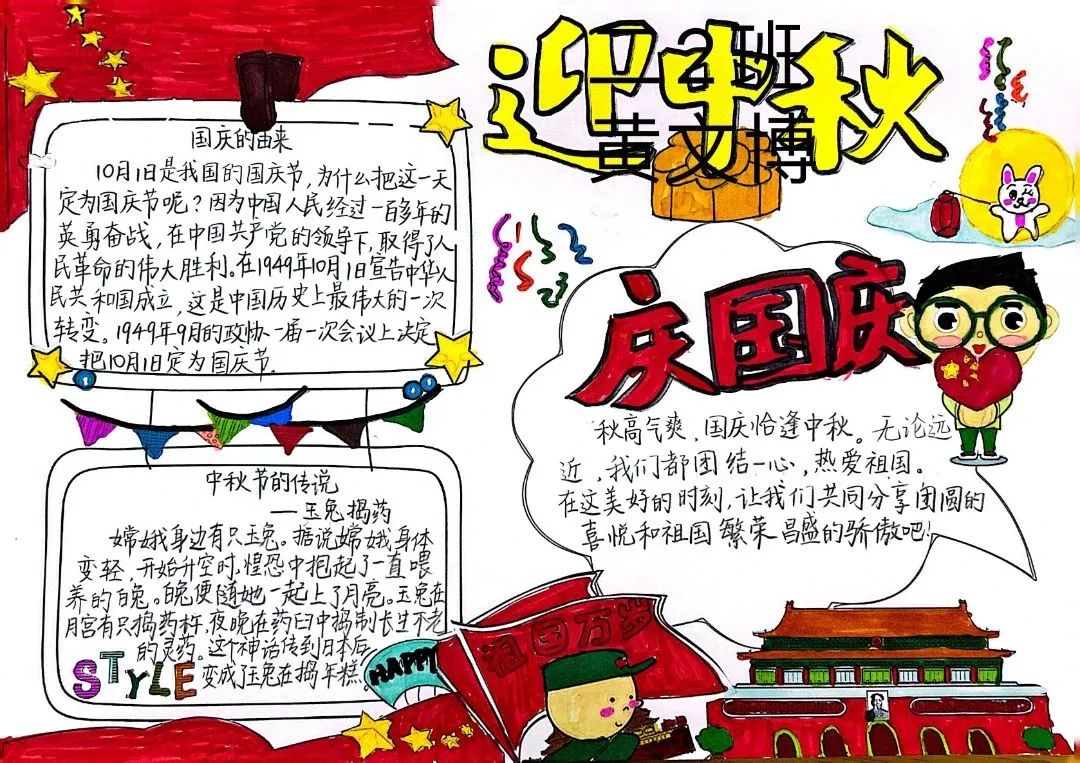 迎中秋
一2班
黄文博
国庆的由来
10月1日是我国的国庆节,为什么把这一天
定为国庆节呢?因为中国人民经过一百多年的
英勇奋战,在中国共产党的领导下,取得了人
民革命的伟大胜利。在1949年10月1日宣告中华人
民共和国成立,这是中国历史上最伟大的一次
转变。1949年9月的政协一届一次会议上决定
把10月1日定为国庆节.
中秋节的传说
—玉兔捣药
嫦娥身边有只玉兔。据说嫦娥身体
变轻,开始升空时,惶恐中抱起了一直喂
养的白兔。白兔便随她一起上了月亮。玉兔在
月宫有只捣药杵,夜晚在药臼中捣制长生不老
的灵药。这个神话传到日本后,
变成了玉兔在捣年糕。
STYLE
HAPPY
庆国庆
秋高气爽,国庆恰逢中秋。无论远
近,我们都团结一心,热爱祖国。
在这美好的时刻,让我们共同分享团圆的
喜悦和祖国繁荣昌盛的骄傲吧!
祖国万岁